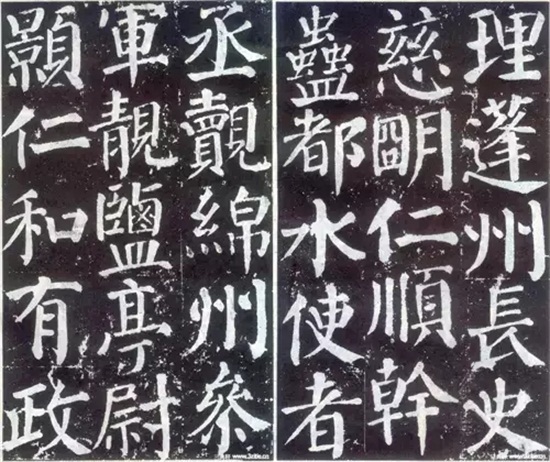 丞覿綿州參
軍靚鹽亭尉
顥仁和有政
理蓬州長史
慈明仁順幹
蠱都水使者